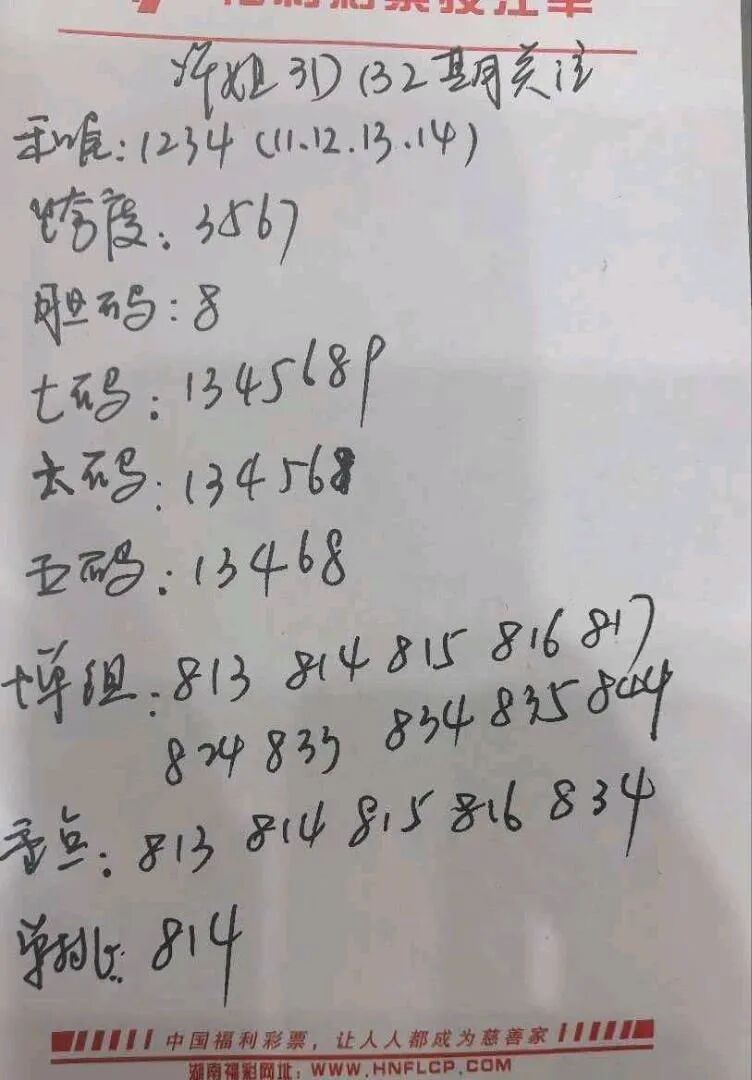 福利彩票投注单
许姐3D132期关注
和值:1234(11.12.13.14)
跨度:3567
胆码:8
七码:1345689
六码:134568
五码:13468
十单组:813 814 815 816 817
824 833 834 835 844
重点:813 814 815 816 834
单挑:814
中国福利彩票,让人人都成为慈善家
湖南福彩网址:WWW.HNFLCP.COM